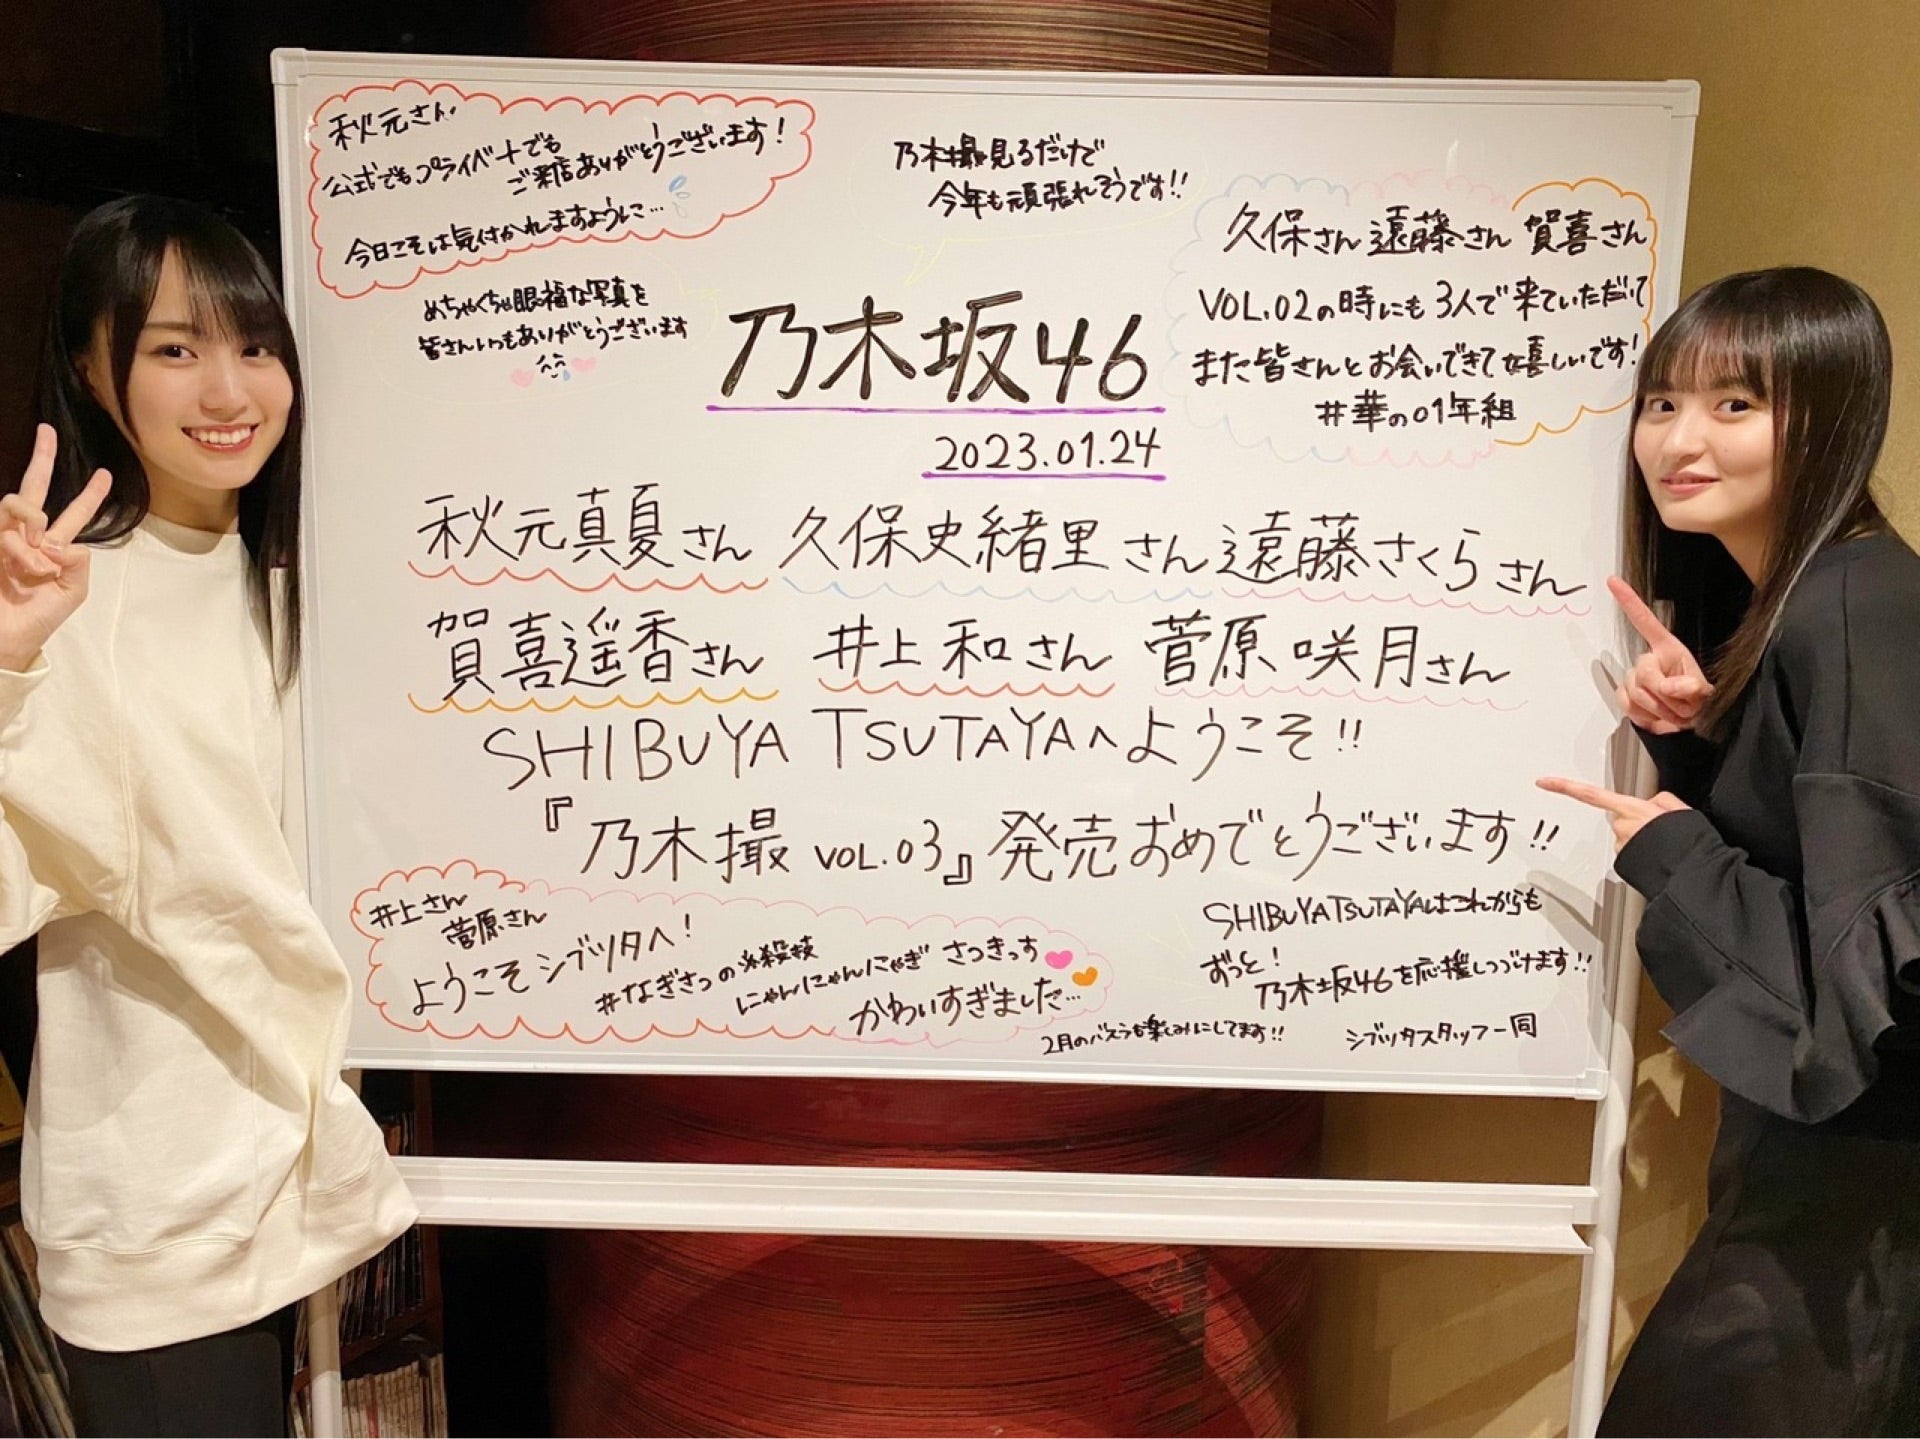 秋元さん
公式でもプライベートでも
ご来店ありがとうございます!
今日こそは気付かれますように…
乃木撮見るだけで
今年も頑張れそうです!!
久保さん 遠藤さん 賀喜さん
VOL.02の時にも3人で来ていただいて
また皆さんとお会いできて嬉しいです!
#華の01年組
めちゃくちゃ眼福な写真を
皆さんいつもありがとうございます
乃木坂46
2023.01.24
秋元真夏さん 久保史緒里さん 遠藤さくらさん
賀喜遥香さん 井上和さん 菅原咲月さん
SHIBUYA TSUTAYAへようこそ!!
『乃木撮 VOL.03』発売おめでとうございます!!
井上さん
菅原さん
ようこそシブツタへ!
#なぎさつの必殺技
にゃんにゃんにゃぎ さつきっす
かわいすぎました…
SHIBUYA TSUTAYAはこれからも
ずっと!
乃木坂46を応援しつづけます!!
2月のバスラも楽しみにしてます!!
シブツタスタッフ一同